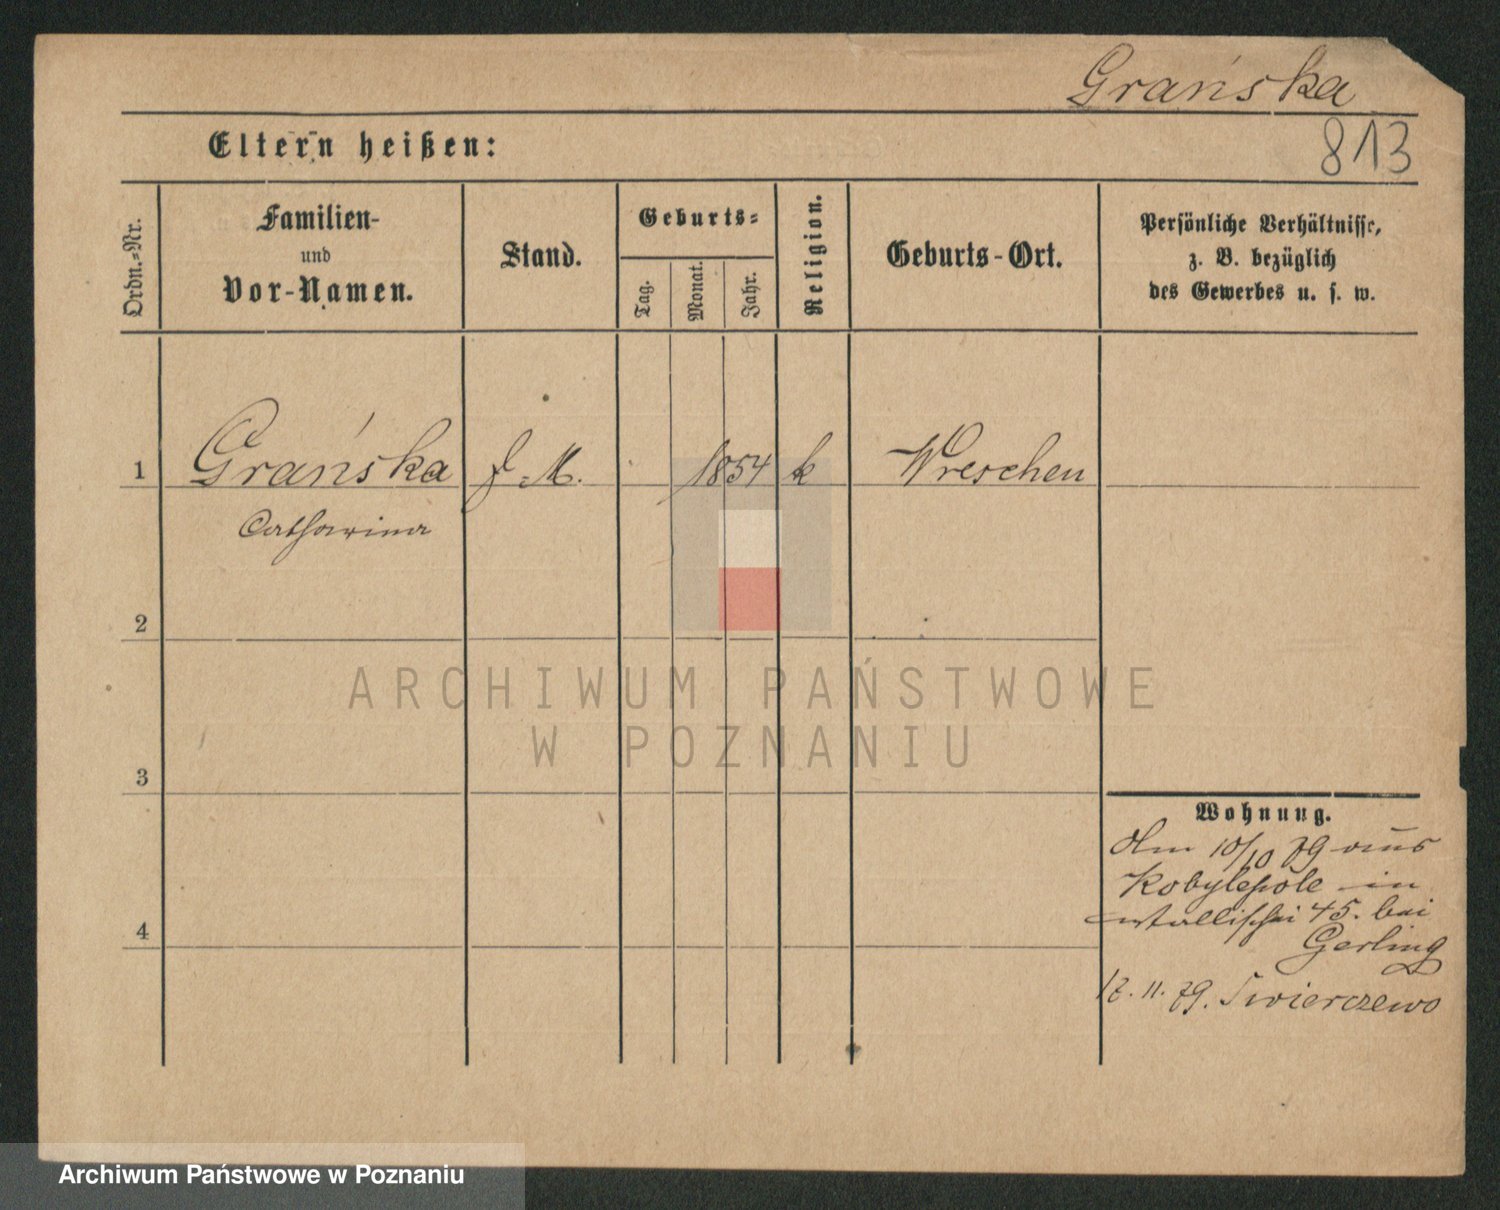 Grańska
813
Eltern heißen:
Ordn.-Nr.
Familien-
und
Vor-Namen.
Stand.
Geburts-
Tag.
Monat.
Jahr.
Religion.
Geburts-Ort.
Persönliche Verhältnisse,
z. B. bezüglich
des Gewerbes u. s. w.
1 Grańska J. M. 1854 k Wreschen
Catharina
2
3
4
Wohnung.
Am 10/10 79 aus
Kobylepole in
Wallischei 45. bei
Gerling
17. 11. 79. Swierczewo
ARCHIWUM PAŃSTWOWE
W POZNANIU
Archiwum Państwowe w Poznaniu